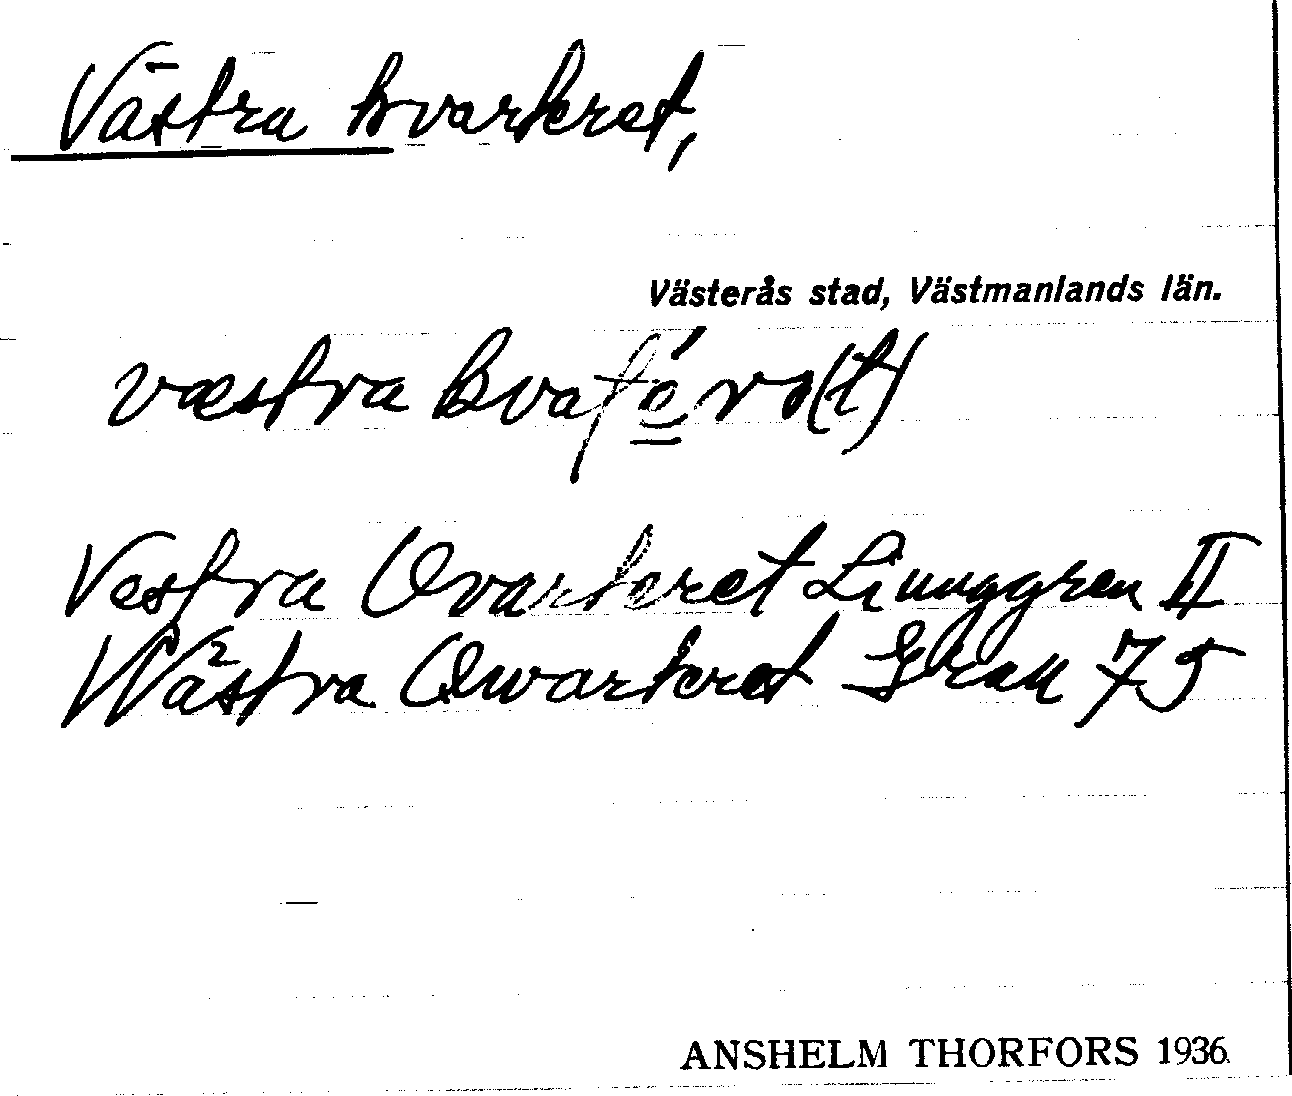 Västra kvarteret,
Västerås stad, Västmanlands län.
væstra kva
Vestra Qvarteret Ljunggren II
Wästra Qwarteret Gran 75
ANSHELM THORFORS 1936.